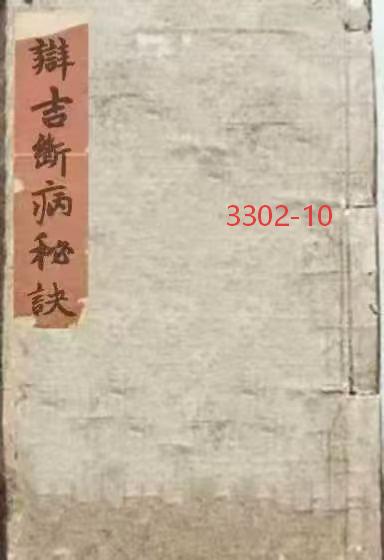 辯吉斷病秘訣
3302-10